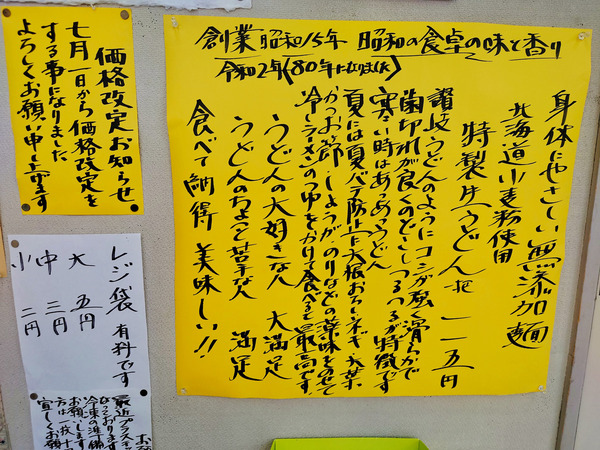 創業昭和15年 昭和の食卓の味と香り
令和2年(80年になりました)
身体にやさしい無添加麺
北海道小麦粉使用
特製生うどん一把 一一五円
讃岐うどんのようにコシが強く滑らかで
歯切れが良くのどごしつるつるが特徴です
寒い時はあったかうどん
夏には夏バテ防止に大根おろし、ネギ、大葉
かつお節、しょうが、のりなどの薬味をのせて
冷しラーメンのつゆをかけて食べると最高です
うどんの大好きな人 大満足
うどんのちょっと苦手な人 満足
食べて納得 美味しい!!
価格改定お知らせ
七月一日から価格改定を
する事になりました
よろしくお願い申し上げます
レジ袋 有料です
大 五円
中 三円
小 二円
最近プラスチ